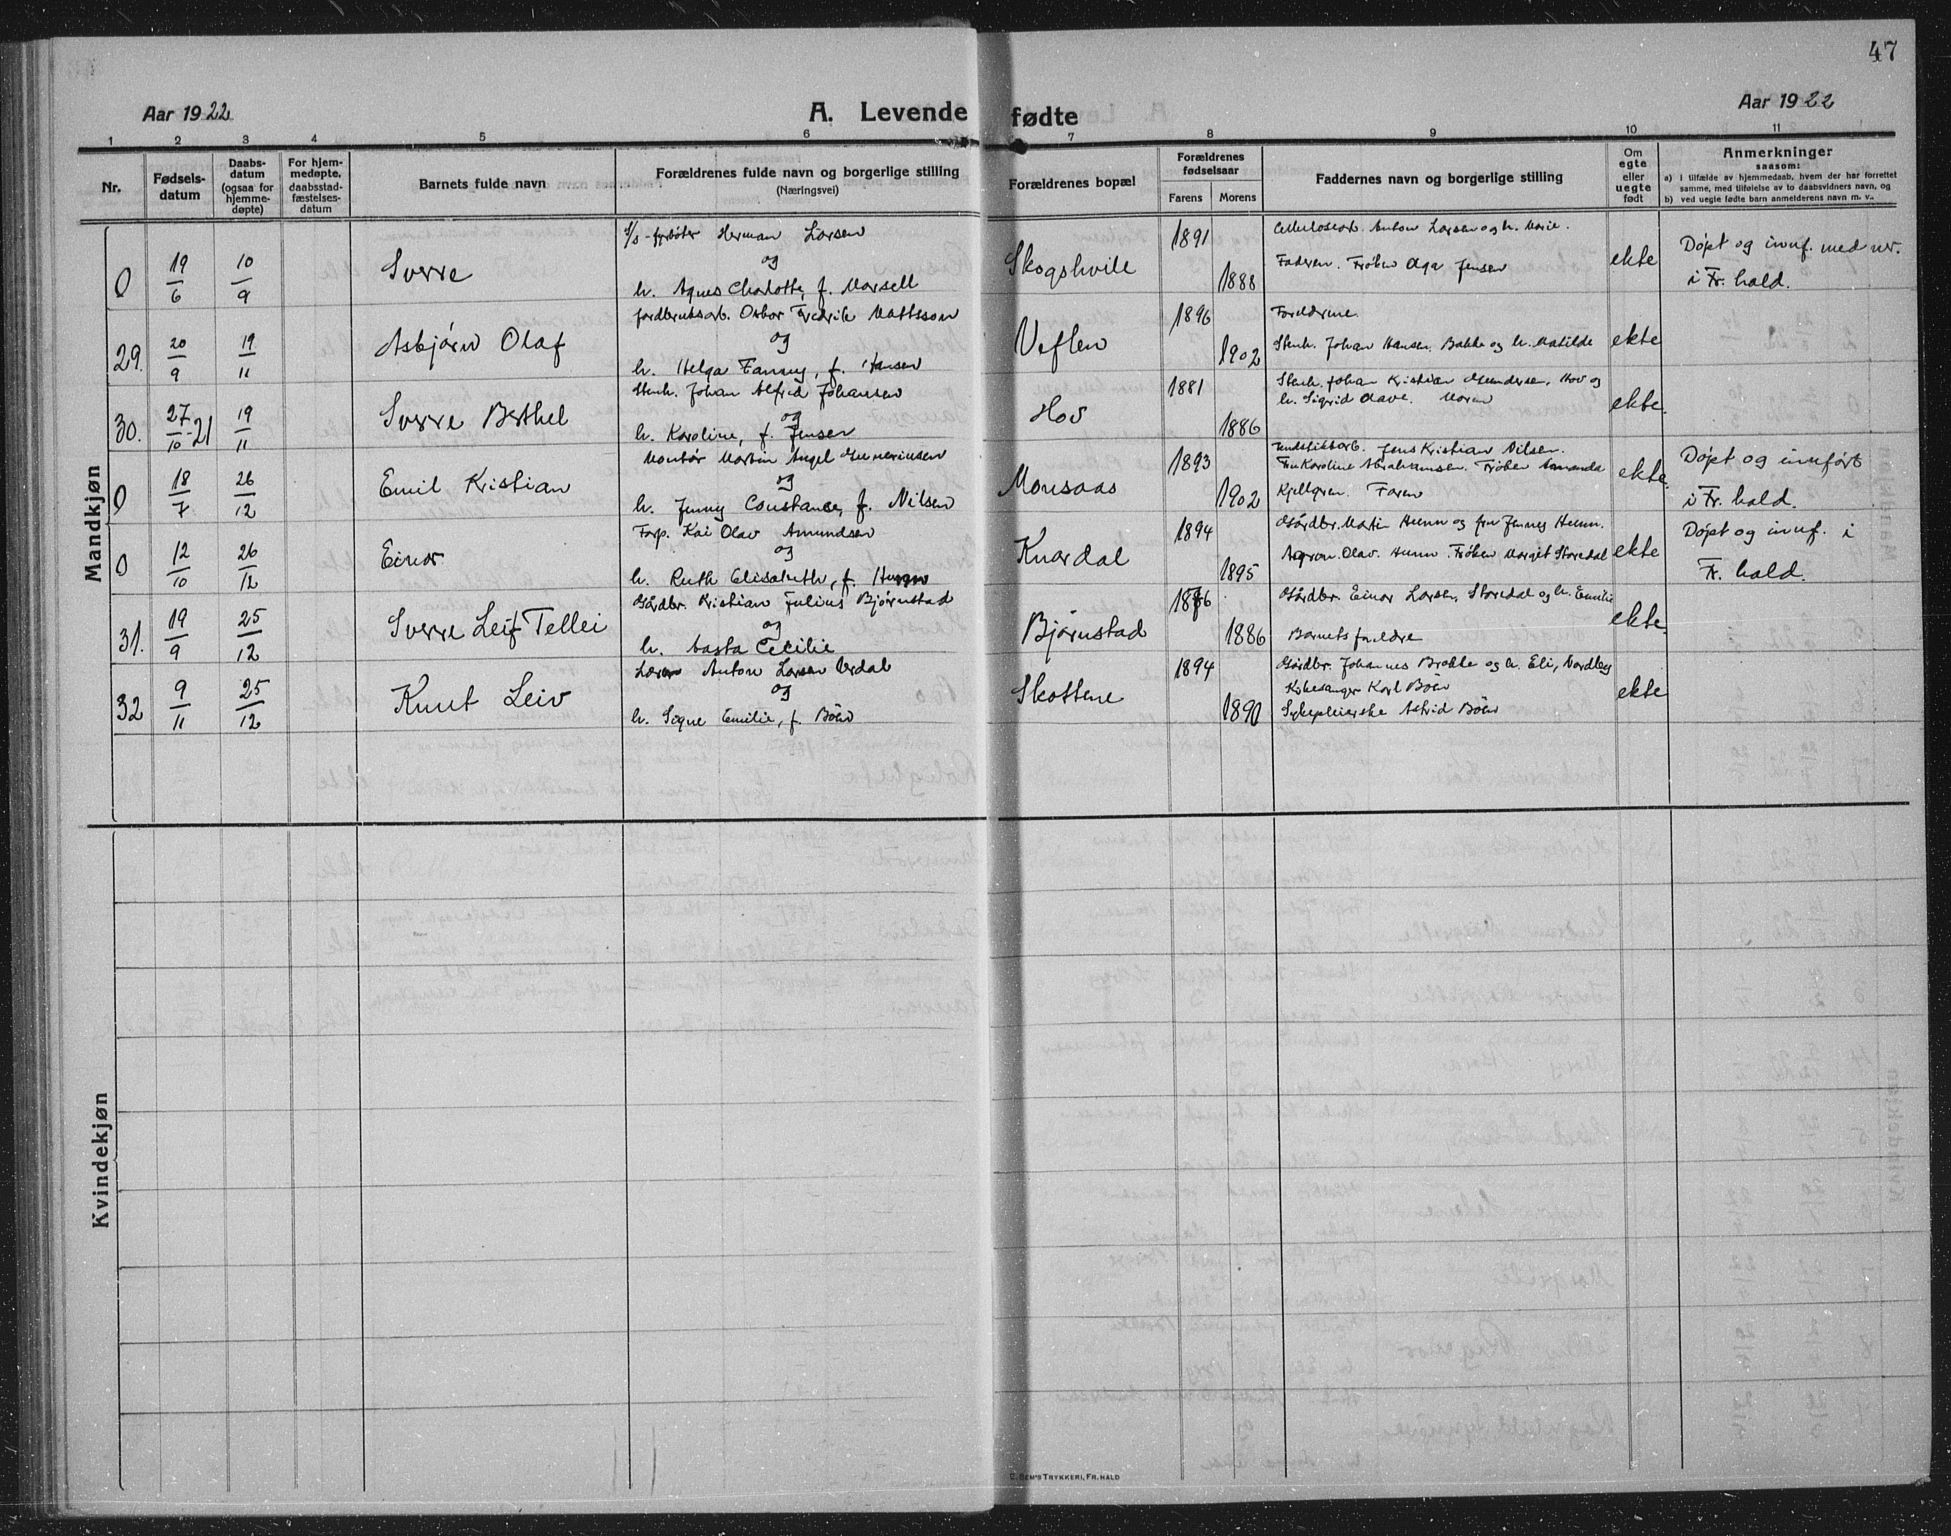 47
Aar 1922
A. Levende fødte
Aar 1922
1 2 3 4 5 6 7 8 9 10 11
Nr.
Fødsels-
datum
Daabs-
datum
(ogsaa for
hjemme-
døpte)
For hjem-
medøpte,
daabsstad-
fæstelses-
datum
Barnets fulde navn
Forældrenes fulde navn og borgerlige stilling
(Næringsvei)
Forældrenes bopæl
Forældrenes
fødselsaar
Farens Morens
Faddernes navn og borgerlige stilling
Om
egte
eller
uegte
født
Anmerkninger
saasom:
a) i tilfælde av hjemmedaab, hvem der har forrettet
samme, med tilføielse av to daabsvidners navn, og
b) ved uegte fødte barn anmelderens navn m. v.
Mandkjøn
0 19/6 10/9 Sverre
S/s-fyrbøter Herman Larsen
og
h. Agnes Charlotte, f. Marsell
Skogshvile 1891 1888
Cellulosearb. Anton Larsen og h. Marie.
Faderen. Frøken Olga Jensen
ekte
Døpt og innf. med nr.
i Fr. hald.
29. 20/9 19/11 Asbjørn Olaf
Jordbruksarb. Oskar Fredrik Mattsson
og
h. Helga Fanny, f. Hansen
Veflen 1896 1902
Foreldrene
Stenh. Johan Hansen, Bakke og h. Matilde
ekte
30. 27/10-21 19/11 Sverre Berthel
Stenh. Johan Alfred Johansen
og
h. Karoline, f. Jensen
Hov 1881 1886
Stenh. Johan Kristian Gundersen, Hov og
h. Sigrid Olave. Moren
ekte.
0 18/7 26/12 Emil Kristian
Montør Martin Angel Gunerinsen
og
h. Jenny Constance, f. Nilsen
Monsaas 1893 1902
Jens Kristian Nilsen.
Fru Karoline Abrahamsen. Frøken Amanda
Kjellgren. Faren
ekte.
Døpt og innført
i Fr. hald.
0 12/10 26/12 Einar
Forp. Kai Olav Amundsen
og
h. Ruth Elisabeth, f. Hunn
Knardal 1894 1895
Gårdbr. Martin Hunn og fru Jenny Hunn.
Agron. Olav Hunn. Frøken Margit Storedal
ekte
Døpt og innf. i
Fr. hald.
31. 19/9 25/12 Sverre Leif Tellei
Gårdbr. Kristian Julius Bjørnstad
og
h. Aasta Cecilie
Bjørnstad 1876 1886
Gårdbr. Einar Larsen, Storedal og h. Emilie
Barnets foreldre
ekte.
32 9/11 25/12 Knut Leiv
Lærer Anton Larsen Verdal
og
h. Signe Emilie, f. Böhn
Skottene 1894 1890
Gårdbr. Johannes Brekke og h. Eli, Nordby
Kirkesanger Karl Böhn
Sykepleierske Astrid Böhn
ekte
Kvindekjøn
C. BEM'S TRYKKERI, FR. HALD